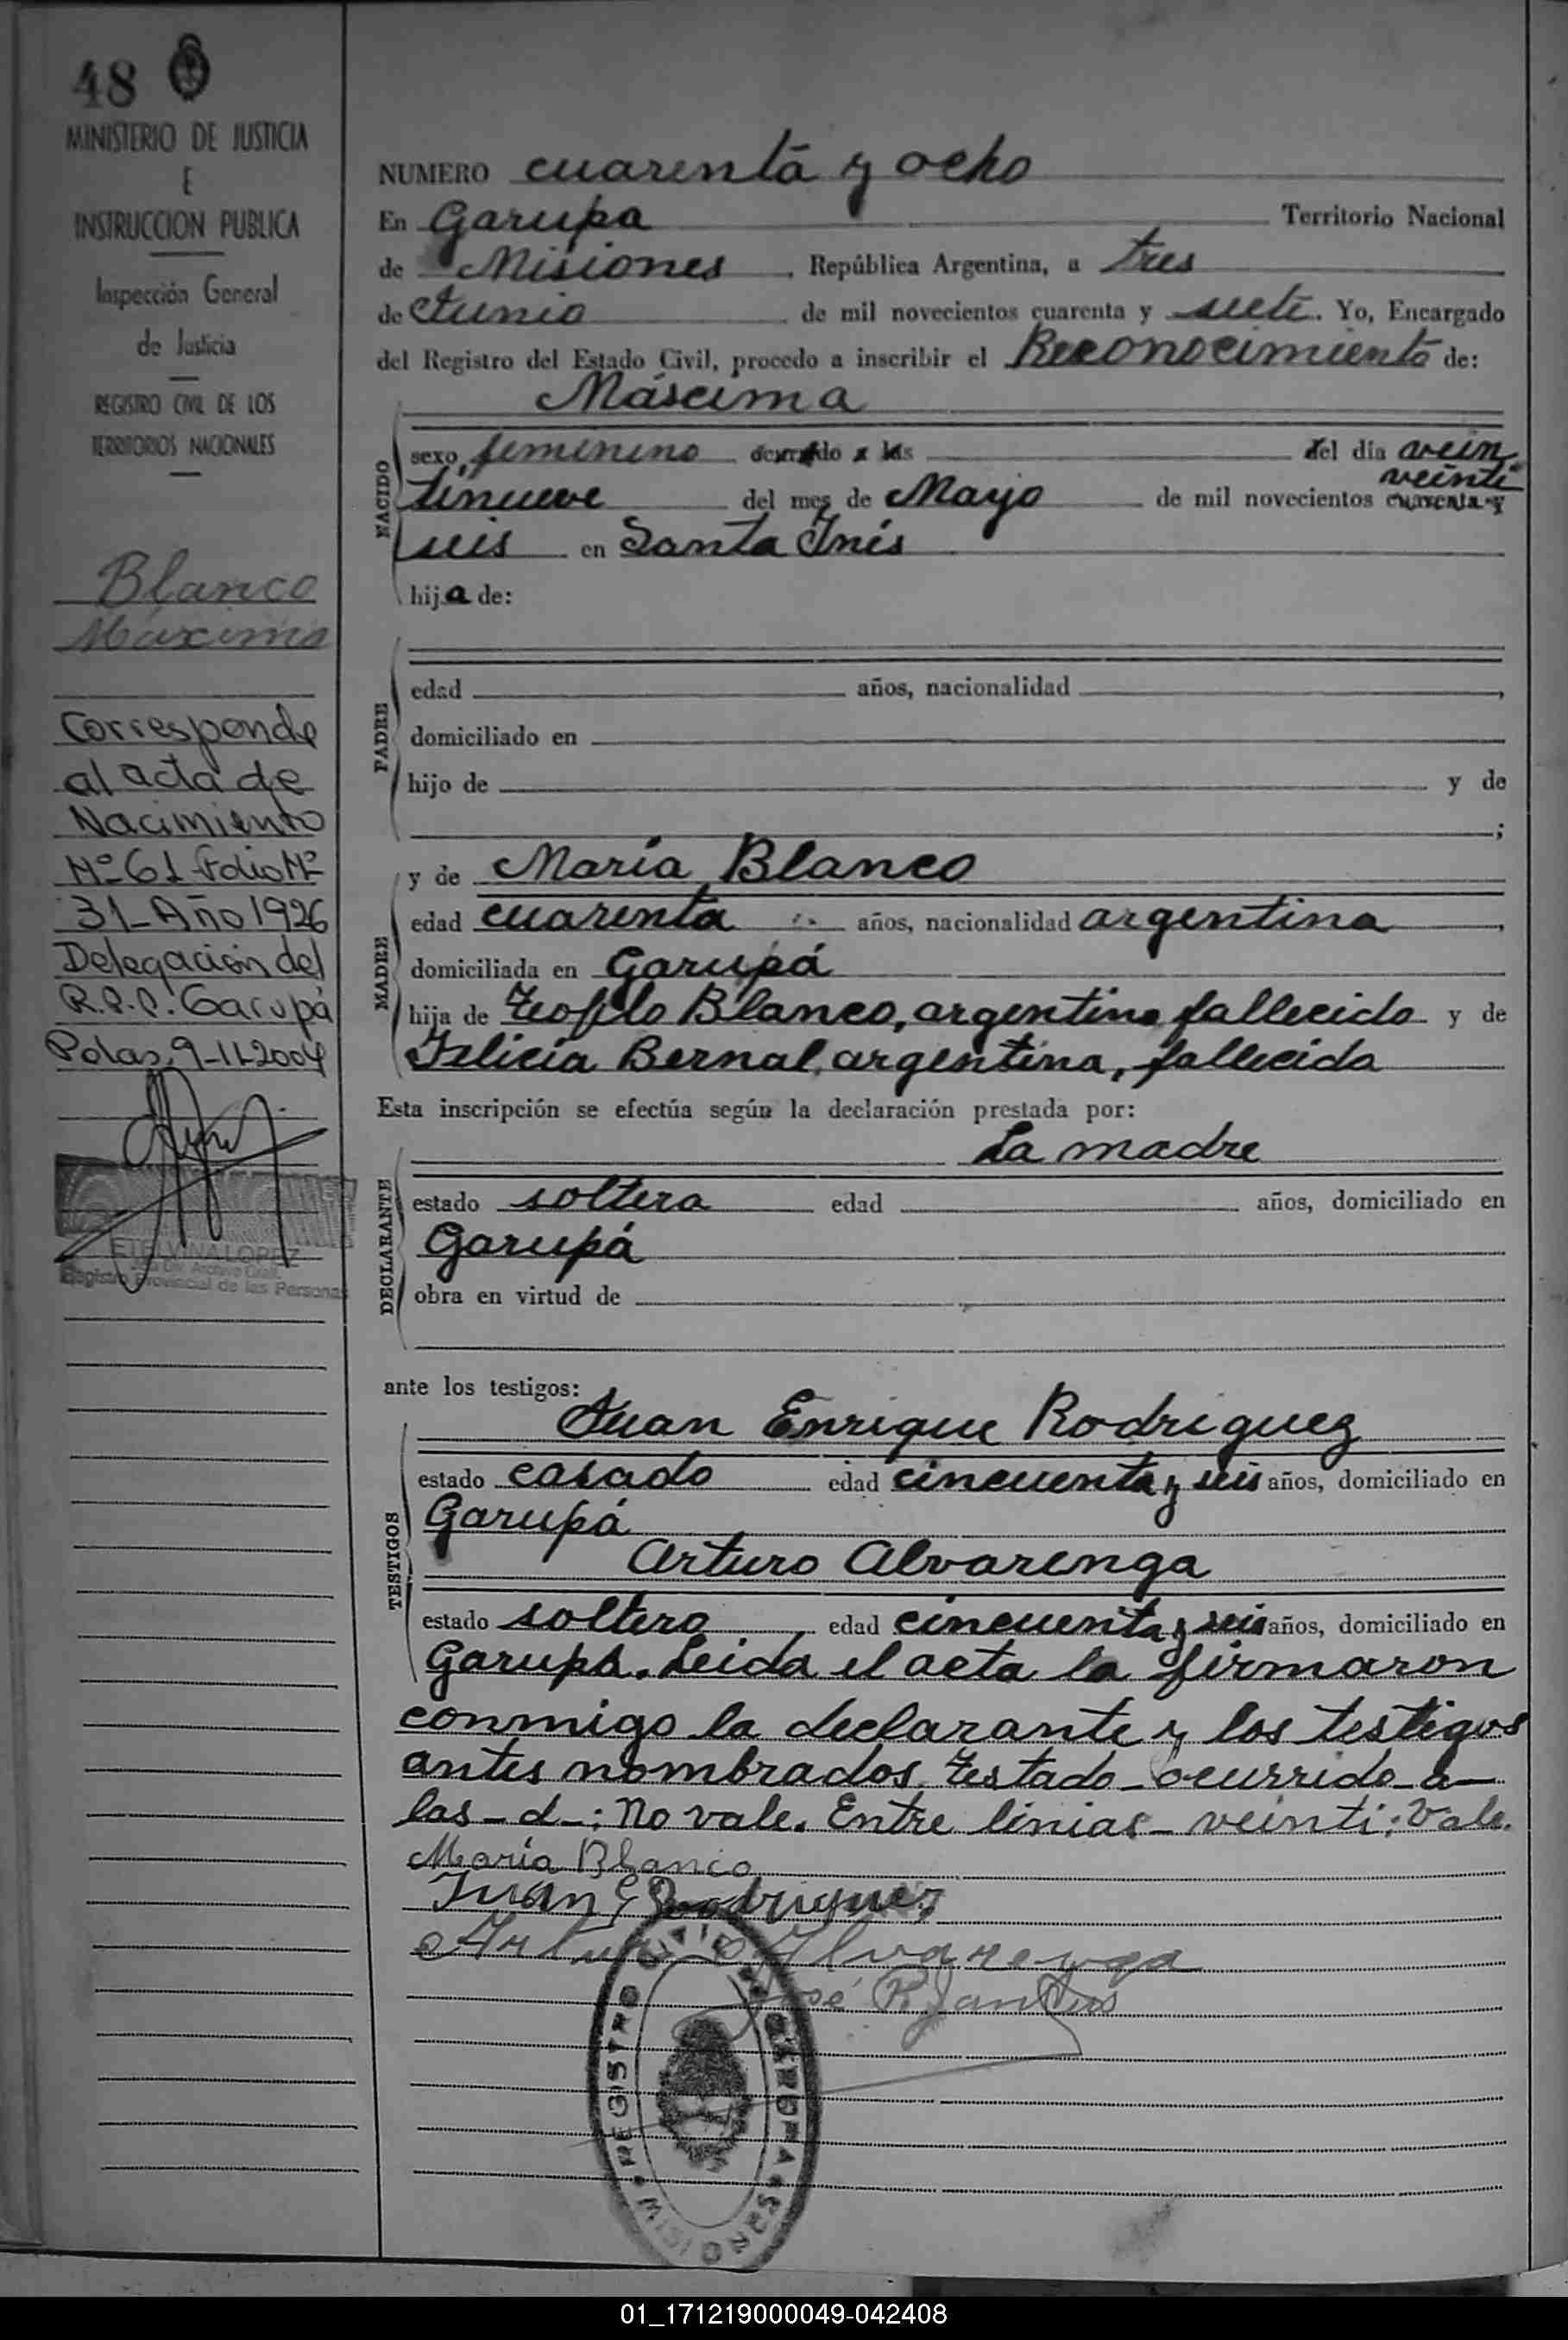 48
MINISTERIO DE JUSTICIA
E
INSTRUCCION PUBLICA
Inspección General
de Justicia
REGISTRO CIVIL DE LOS
TERRITORIOS NACIONALES
Blanco
Máxima
Corresponde
al acta de
Nacimiento
Nº 61 folio Nº
31 - Año 1926
Delegación del
R.P.P. Garupá
Pdas, 9-11-2004
ETELVINA LOPEZ
Registro Provincial de las Personas
NUMERO cuarenta y ocho
En Garupa Territorio Nacional
de Misiones, República Argentina, a tres
de Junio de mil novecientos cuarenta y siete. Yo, Encargado
del Registro del Estado Civil, procedo a inscribir el Reconocimiento de:
Máscima
NACIDO
sexo, femenino ocurrido a las del día vein
veinti
tinueve del mes de Mayo de mil novecientos cuarenta y
seis en Santa Inés
hija de:
PADRE
edad años, nacionalidad ,
domiciliado en
hijo de y de
;
MADRE
y de María Blanco
edad cuarenta años, nacionalidad argentina,
domiciliada en Garupá
hija de Teofilo Blanco, argentino, fallecido y de
Felicia Bernal, argentina, fallecida
Esta inscripción se efectúa según la declaración prestada por:
La madre
DECLARANTE
estado soltera edad años, domiciliado en
Garupá
obra en virtud de
ante los testigos:
Juan Enrique Rodriguez
TESTIGOS
estado casado edad cincuenta y seis años, domiciliado en
Garupá
Arturo Alvarenga
estado soltero, edad cincuenta y seis años, domiciliado en
Garupá. Leida el acta la firmaron
conmigo la declarante y los testigos
antes nombrados. Testado - ocurrido - a -
las - d -: No vale. Entre linias - veinti: Vale.
María Blanco
Juan E Rodriguez
Arturo Alvarenga
José R. Santos
REGISTRO CIVIL
GARUPA
MISIONES
01_171219000049-042408